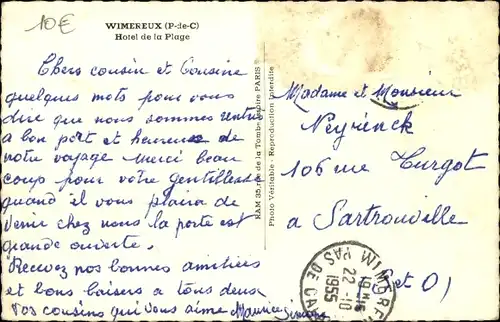 10€
WIMEREUX (P-de-C)
Hotel de la Plage
Chers cousin et Cousine
quelques mots pour vous
dire que nous sommes rentre
a bon port et heureux de
notre voyage Merci beau
coup pour votre gentillesse
quand il vous plaira de
venir chez nous la porte est
grande ouverte.
Recevez nos bonnes amitiées
et bons baisers a tous deux
Vos cousins qui vous aime Maurice Simone
RAM 35, rue de la Tombe-Issoire PARIS
Photo Véritable - Reproduction Interdite
Madame et Monsieur
Neyrienck
106 rue Turgot
a Sartrouville
(S et O)
WIMEREUX
PAS DE CALAIS
22-10
1955